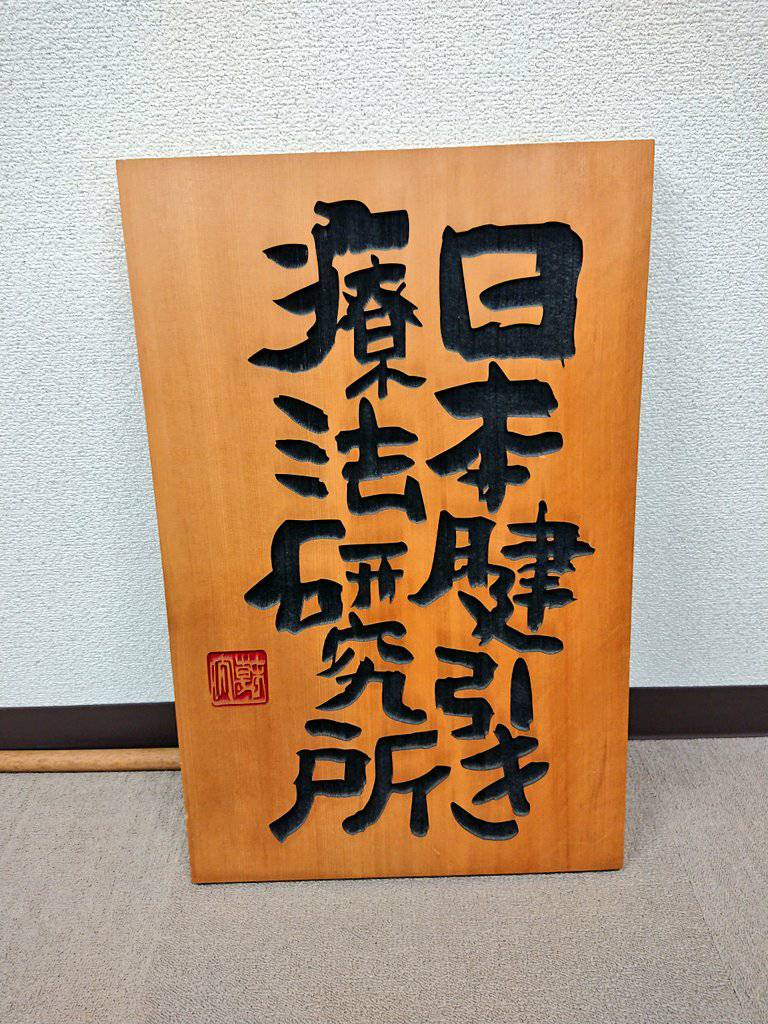 日本腱引き
療法研究所